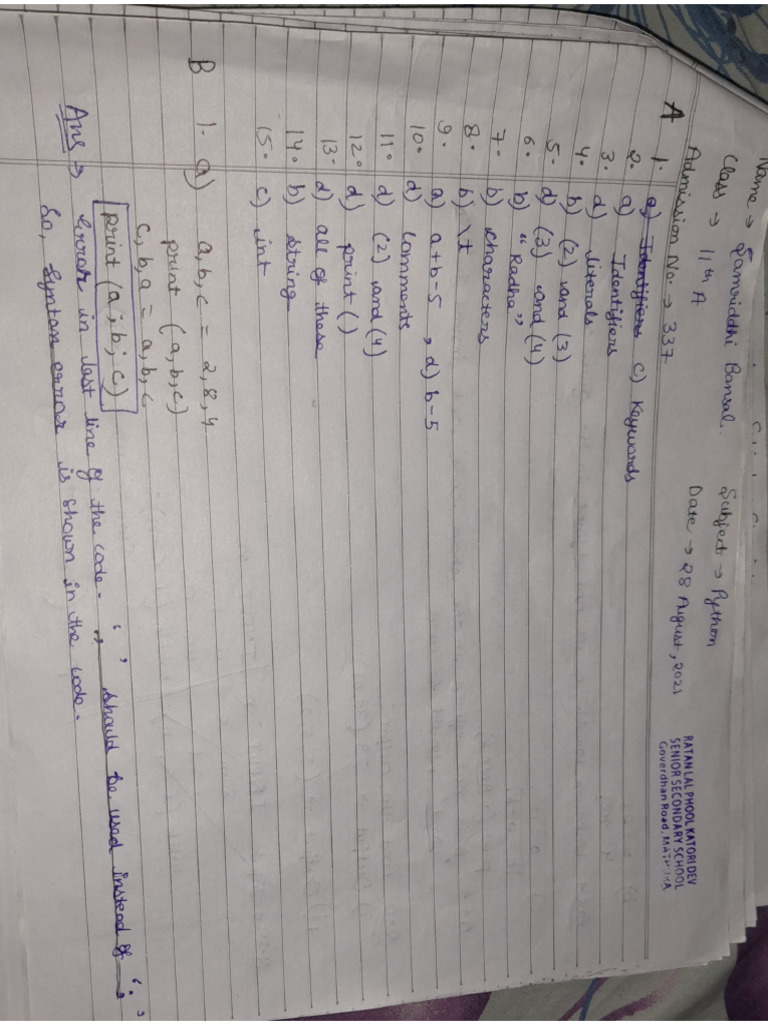 Name → Samriddhi Bansal. Subject → Python
Class → 11th A Date → 28 August, 2021
Admission No. → 337
RATAN LAL PHOOL KATORI DEVI
SENIOR SECONDARY SCHOOL
Goverdhan Road, MATHURA
A 1. a) Identifiers c) Keywords
2. a) Identifiers
3. d) literals
4. b) (2) and (3)
5. d) (3) and (4)
6. b) "Radha"
7. b) characters
8. b) \t
9. a) a+b-5 , d) b-5
10. d) comments
11. d) (2) and (4)
12. d) print ( )
13. d) all of these
14. b) string
15. c) int
B 1. a) a, b, c = 2, 8, 4
print (a, b, c)
c, b, a = a, b, c
print (a ; b ; c)
Ans → Error in last line of the code. ' , ' should be used instead of ' ; '
So, Syntax error is shown in the code.